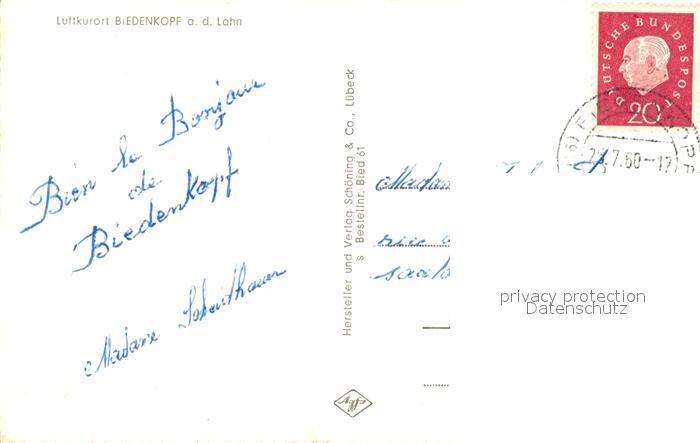 Luftkurort BIEDENKOPF a. d. Lahn
Bien le Bonjour
de
Biedenkopf
Madame Scheidthauer
Hersteller und Verlag Schöning & Co., Lübeck
s Bestellnr. Bied 61
Agfa
DEUTSCHE BUNDESPOST
20
.7.60-17
Madam
rue
saalo
privacy protection
Datenschutz